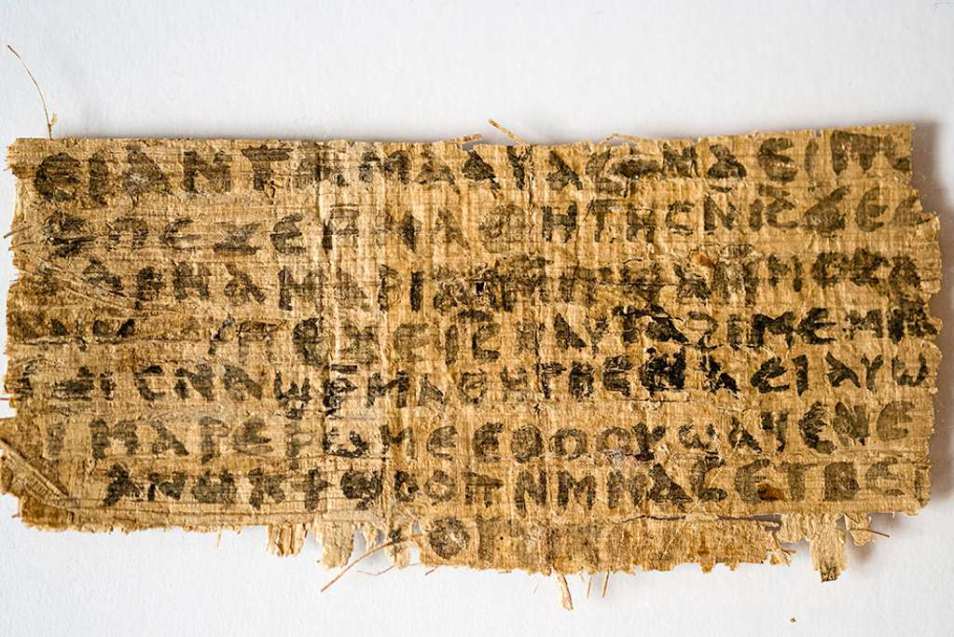 ⲉⲓ ⲁⲛ ⲧⲁⲙⲁⲁⲩ ⲁⲥϯ ⲛⲁⲉⲓ ⲡⲱ
ⲡⲉϫⲉ ⲙⲙⲁⲑⲏⲧⲏⲥ ⲛⲓ̅ⲥ̅ ϫⲉ ⲥ
ⲁⲣⲛⲁ ⲙⲁⲣⲓⲁⲙ ⲙⲡϣⲁ ⲙⲙⲟⲥ ⲁ
ⲡⲉϫⲉ ⲓ̅ⲥ̅ ⲛⲁⲩ ⲧⲁϩⲓⲙⲉ ⲙⲛ
ⲥⲛⲁϣⲣ̅ⲙⲁⲑⲏⲧⲏⲥ ⲛⲁⲉⲓ ⲁⲩⲱ
ⲓ ⲙⲁⲣⲉⲣⲱⲙⲉ ⲉⲑⲟⲟⲩ ϣⲁϥⲉ ⲛⲉ
ⲁⲛⲟⲕ ϯϣⲟⲟⲡ ⲛⲙⲙⲁⲥ ⲉⲧⲃⲉ ⲡ